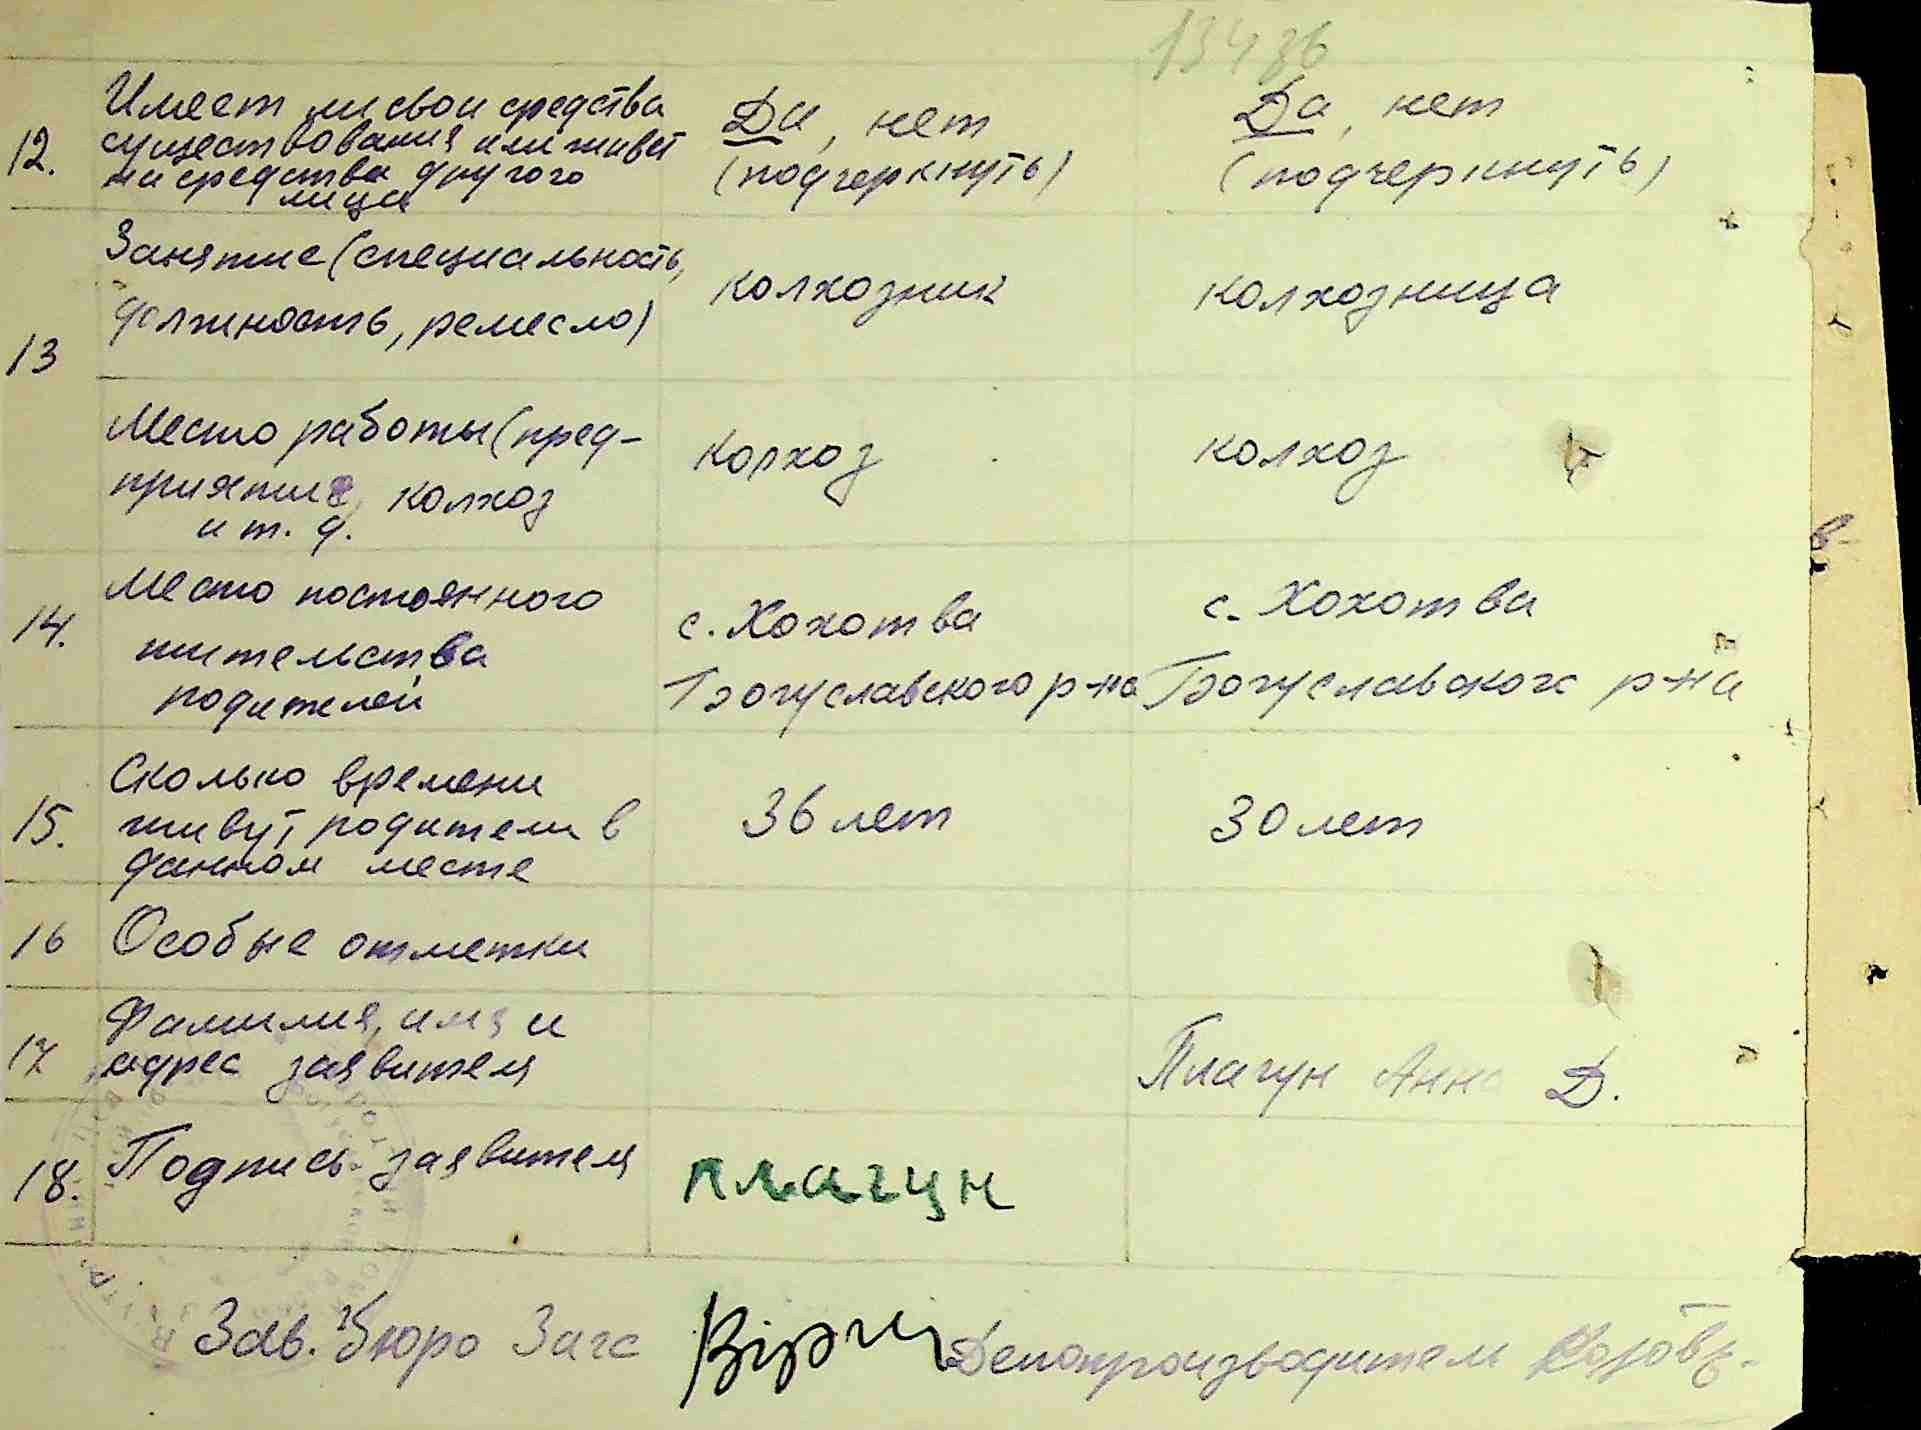 13436
12.
Имеет ли свои средства
существования или живет
на средства другого
лица
Да, нет
(подчеркнуть)
Да, нет
(подчеркнуть)
13
Занятие (специальность,
должность, ремесло)
колхозник
колхозница
Место работы (пред-
приятие, колхоз
и т. д.
колхоз
колхоз
14.
Место постоянного
жительства
родителей
с. Хохотва
Богуславского р-на
с. Хохотва
Богуславского р-на
15.
Сколько времени
живут родители в
данном месте
36 лет
30 лет
16
Особые отметки
17
Фамилия, имя и
адрес заявителя
Плагун Анна Д.
18.
Подпись заявителя
плагун
Зав. Бюро Загс
Делопроизводитель